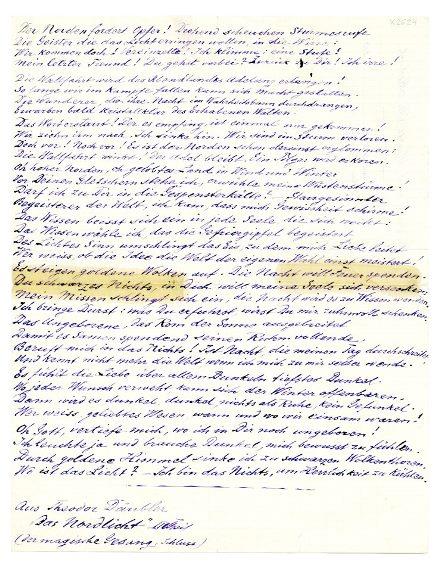 K2624
Der Norden fordert Opfer! Drohend scheuchen Sturmesrufe
Die Geister die das Licht erringen wollen, in die Wüste.
Wer kommt doch? Vereinzelte! Ich klimme: eine Stufe!
Mein letzter Freund! Du gehst vorbei? Zurück zu Dir! Ich irre!
Die Wallfahrt wird des Nordlandes Adelung erlangen!
So lange wir im Kampfe fallen kann sich Macht gestalten.
Die Wunderer, die ihre Nacht im durchdrangen,
Erwarben bald des Erhabenen Walten.
Das Nordenlaut! Der es empfing ist einmal nur gekommen!
Wir ziehn ihm nach. Ich sinke hin. Wir sind im Sturm verloren.
Doch vor! Noch vor! Es ist der Norden schon darinnst erglommen:
Die Wallfahrt winkt, der Adel bleibt. Ein Sieger wird erkoren.
Oh hoher Norden, oh gelobtes Land in Wind und Winter
Von Deinen Gletschern stehe ich, erwähle meine Wüstenstürme!
Darf ich zu dir in die Gespensterkälte?
Begeisterer der Welt, ich kam, dass mich Gewissheit schirme!
Das Wissen beisst sich ein in jede Seele die sich
Das Wissen wähle ich, das die begeistert
Des Lichtes Sinn umschlingt das Eis, zu dem mich Liebe
Wer weiss ob die Idee die Welt der eigenen Wahl einst meistert!
Es steigen goldene Wolken auf. Die Nacht will Feuer spenden.
Du schwarzes Nichts, in Dich will meine Seele sich versenken,
Mein Wissen schlingt sich ein, die Nacht wird es zu Wissen wenden,
Ich bringe Durst: was Du erfährst wirst Du mir schenken,
Das Ungeborene, das Kam der Sonne ausgebreitet
Damit es Sonnen spendend seinen Kosmos vollende.
Bereift mich in das Nichts! Ist Nacht die meinen Tag durchschreitet,
Und kommt nicht mehr die Welt wenn ich mich zu mir selber wende.
Es fühlt die Liebe über allem Dunkeln tiefstes Dunkel.
Wo jeder Wunsch verweht kann sich der Winter offenbaren.
Dann wird es dunkel, dunkel nichts als Liebe, kein Gefunkel.
Wer weiss, geliebtes Wesen wann und wo wir einsam waren!
Oh Gott, vertiefe mich, wo ich in Dir noch ungeboren!
Ich leuchte ja und brauche Dunkel, mich bewusst zu fühlen.
Durch goldene Himmel sinke ich zu schwarzen Wolkentoren,
Wo ist das Licht? Ich bin das Nichts, um Herrlichkeit zu kühlen.
Aus Theodor Däubler
"Das Nordlicht"
(Der magische Gesang, Schluss)